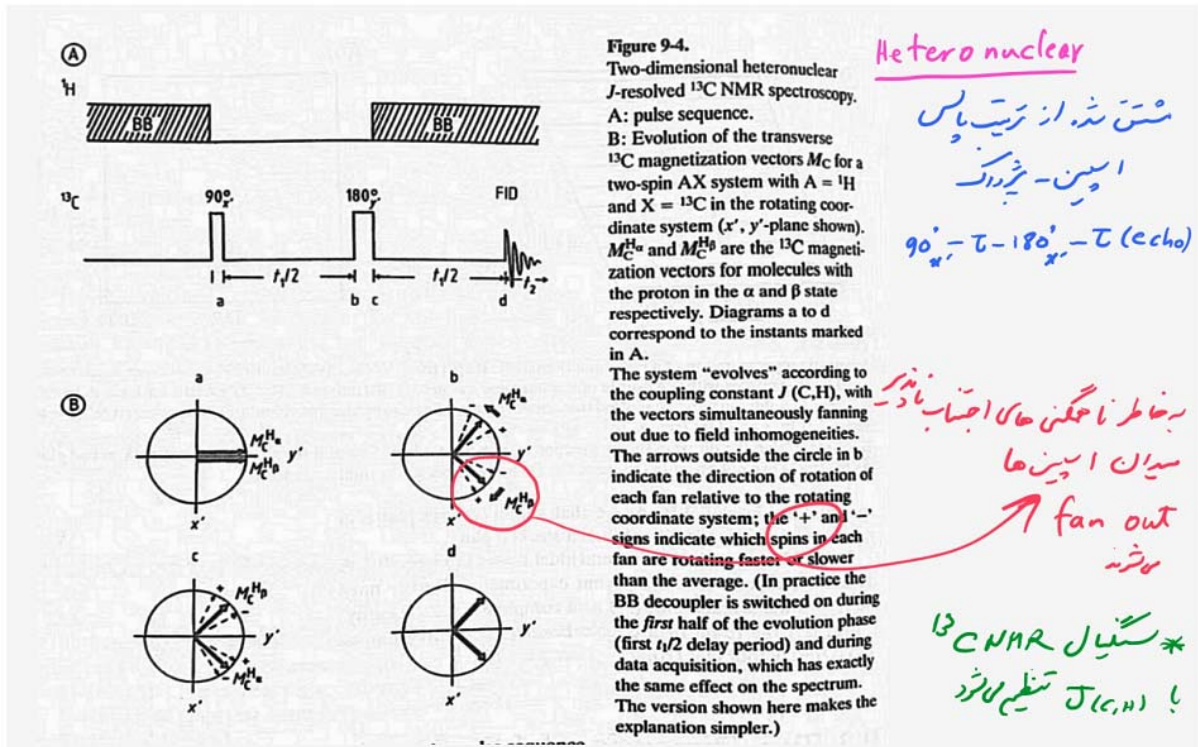 Ⓐ
¹H
BB
BB
¹³C
90°x'
180°y'
FID
t₁/2
t₁/2
t₂
a
b
c
d
Ⓑ
a
M_C^Hα
y'
M_C^Hβ
x'
b
M_C^Hα
+
-
y'
-
+
M_C^Hβ
x'
c
+
M_C^Hβ
-
y'
+
- M_C^Hα
x'
d
y'
x'
Figure 9-4.
Two-dimensional heteronuclear
J-resolved ¹³C NMR spectroscopy.
A: pulse sequence.
B: Evolution of the transverse
¹³C magnetization vectors M_C for a
two-spin AX system with A = ¹H
and X = ¹³C in the rotating coor-
dinate system (x', y'-plane shown).
M_C^Hα and M_C^Hβ are the ¹³C magneti-
zation vectors for molecules with
the proton in the α and β state
respectively. Diagrams a to d
correspond to the instants marked
in A.
The system “evolves” according to
the coupling constant J (C,H), with
the vectors simultaneously fanning
out due to field inhomogeneities.
The arrows outside the circle in b
indicate the direction of rotation of
each fan relative to the rotating
coordinate system; the ‘+’ and ‘–’
signs indicate which spins in each
fan are rotating faster or slower
than the average. (In practice the
BB decoupler is switched on during
the first half of the evolution phase
(first t₁/2 delay period) and during
data acquisition, which has exactly
the same effect on the spectrum.
The version shown here makes the
explanation simpler.)
Heteronuclear
مشتق شده از ترتیب پالس
اسپین - پژواک
90°x' - τ - 180°x' - τ (echo)
به خاطر ناهمگنی های اجتناب ناپذیر
میدان اسپین ها
fan out
می شوند
* سیگنال ¹³C NMR
با J(C,H) تنظیم می شود